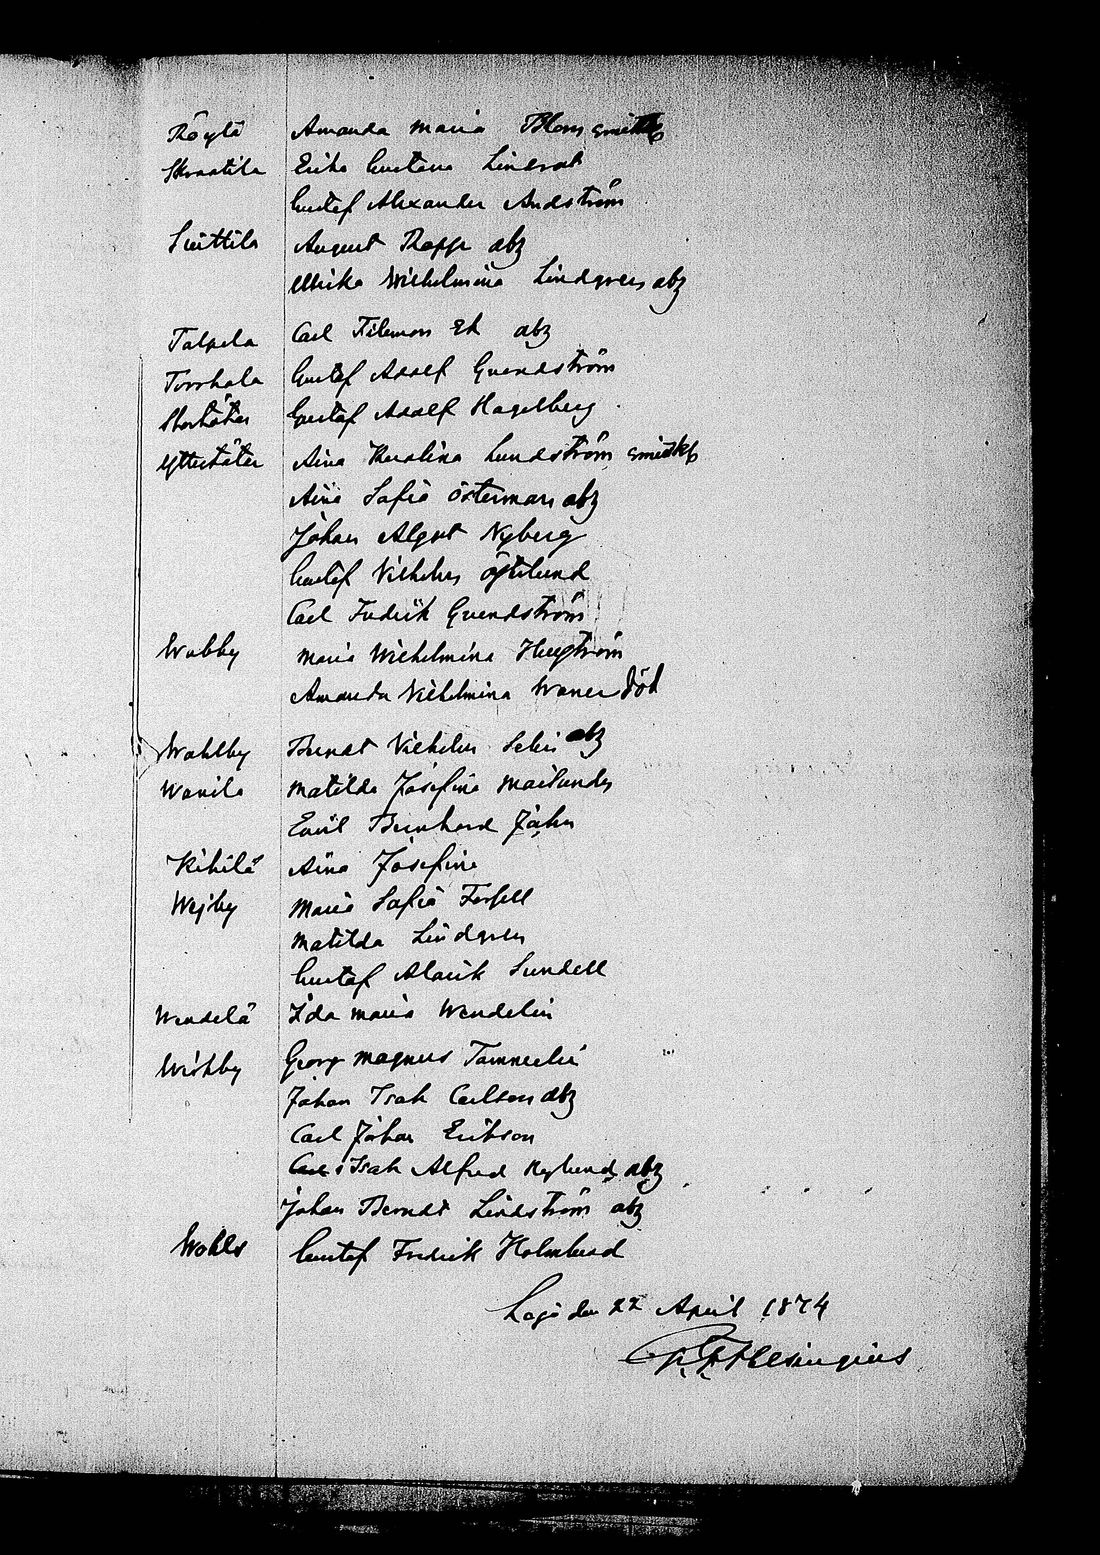 Röylä Amanda Maria Blom smittk
Skraatila Erika Gustava Lindrot
Gustaf Alexander Andström
Suittila August Rapp abz
Ulrika Wilhelmina Lindgren abz
Talpela Carl Filemon Ek abz
Torrhola Gustaf Adolf Grendström
Stortöter Gustaf Adolf Hagelberg
Yttertöter Aina Karolina Lundström smittk
Aina Sofia Österman abz
Johan Algot Nyberg
Gustaf Vilhelm Östelund
Carl Fredrik Grendström
Wabby Maria Wilhelmina Hugström
Amanda Vilhelmina Waner död
Wahlby Berndt Vilhelm Selin abz
Wanila Matilda Josefina Mailander
Emil Bernhard John
Kihilä Aina Josefina
Wejby Maria Sofia Forsell
Matilda Lindgren
Gustaf Alarik Sundell
Wendelä Ida Maria Wendelin
Wiskby Georg Magnus Tammelin
Johan Isak Carlson abz
Carl Johan Erikson
Isak Alfred Nylund abz
Johan Berndt Lindström abz
Wohls Gustaf Fredrik Holmlund
Lojo den 22 April 1874
Helsingius